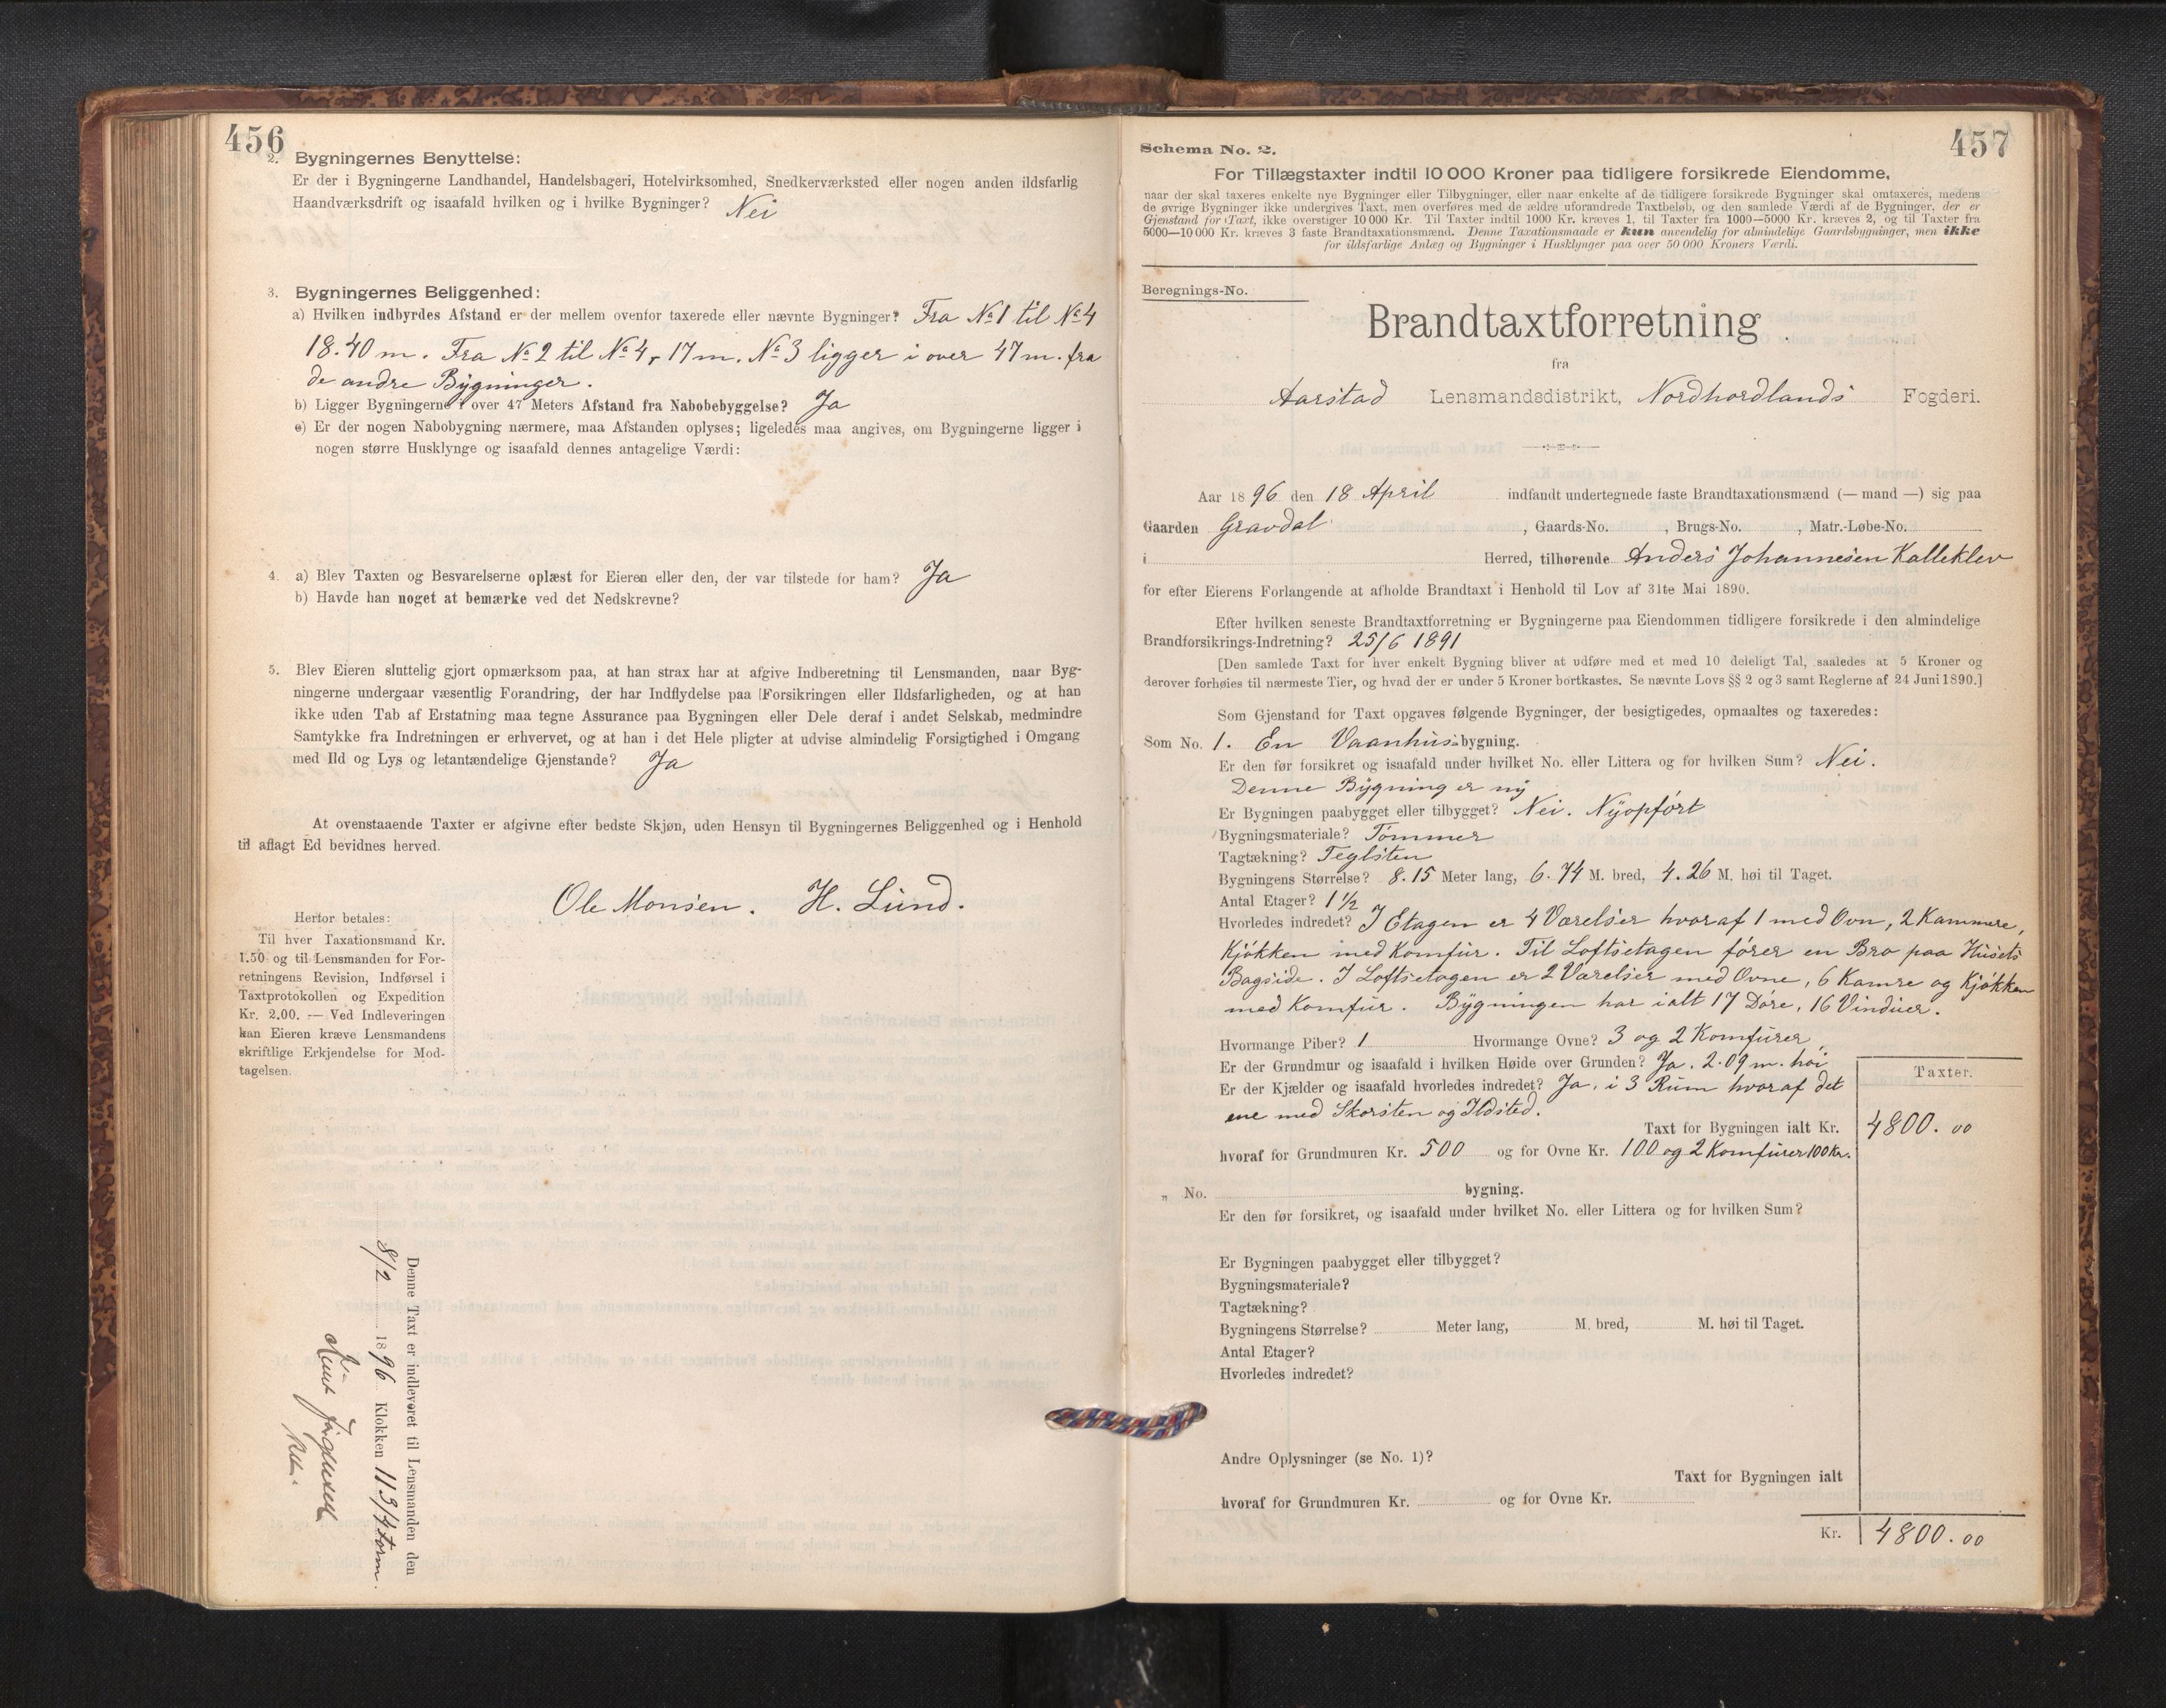 456
2. Bygningernes Benyttelse:
Er der i Bygningerne Landhandel, Handelsbageri, Hotelvirksomhed, Snedkerværksted eller nogen anden ildsfarlig
Haandværksdrift og isaafald hvilken og i hvilke Bygninger? Nei
3. Bygningernes Beliggenhed:
a) Hvilken indbyrdes Afstand er der mellem ovenfor taxerede eller nævnte Bygninger? Fra No 1 til No 4
18.40 m. Fra No 2 til No 4, 17 m. No 3 ligger i over 47 m. fra
de andre Bygninger.
b) Ligger Bygningerne i over 47 Meters Afstand fra Nabobebyggelse? Ja
c) Er der nogen Nabobygning nærmere, maa Afstanden oplyses; ligeledes maa angives, om Bygningerne ligger i
nogen større Husklynge og isaafald dennes antagelige Værdi:
4. a) Blev Taxten og Besvarelserne oplæst for Eieren eller den, der var tilstede for ham? Ja
b) Havde han noget at bemærke ved det Nedskrevne?
5. Blev Eieren sluttelig gjort opmærksom paa, at han strax har at afgive Indberetning til Lensmanden, naar Byg-
ningerne undergaar væsentlig Forandring, der har Indflydelse paa Forsikringen eller Ildsfarligheden, og at han
ikke uden Tab af Erstatning maa tegne Assurance paa Bygningen eller Dele deraf i andet Selskab, medmindre
Samtykke fra Indretningen er erhvervet, og at han i det Hele pligter at udvise almindelig Forsigtighed i Omgang
med Ild og Lys og letantændelige Gjenstande? Ja
At ovenstaaende Taxter er afgivne efter bedste Skjøn, uden Hensyn til Bygningernes Beliggenhed og i Henhold
til aflagt Ed bevidnes herved.
Ole Monsen. H. Lund.
Herfor betales:
Til hver Taxationsmand Kr.
1.50 og til Lensmanden for For-
retningens Revision, Indførsel i
Taxtprotokollen og Expedition
Kr. 2.00. — Ved Indleveringen
kan Eieren kræve Lensmandens
skriftlige Erkjendelse for Mod-
tagelsen.
Denne Taxt er indleveret til Lensmanden den
8/2 1896 Klokken 11 3/4 form.
457
Schema No. 2.
For Tillægstaxter indtil 10 000 Kroner paa tidligere forsikrede Eiendomme,
naar der skal taxeres enkelte nye Bygninger eller Tilbygninger, eller naar enkelte af de tidligere forsikrede Bygninger skal omtaxeres, medens
de øvrige Bygninger ikke undergives Taxt, men overføres med de ældre uforandrede Taxtbeløb, og den samlede Værdi af de Bygninger, der er
Gjenstand for Taxt, ikke overstiger 10 000 Kr. Til Taxter indtil 1000 Kr. kræves 1, til Taxter fra 1000—5000 Kr. kræves 2, og til Taxter fra
5000—10 000 Kr. kræves 3 faste Brandtaxationsmænd. Denne Taxationsmaade er kun anvendelig for almindelige Gaardsbygninger, men ikke
for ildsfarlige Anlæg og Bygninger i Husklynger paa over 50 000 Kroners Værdi.
Beregnings-No.
Brandtaxtforretning
fra
Aarstad Lensmandsdistrikt, Nordhordlands Fogderi.
Aar 1896 den 18 April indfandt undertegnede faste Brandtaxationsmænd (— mand —) sig paa
Gaarden Gravdal, Gaards-No. , Brugs-No. , Matr.-Løbe-No.
i Herred, tilhørende Anders Johannesen Kalleklev
for efter Eierens Forlangende at afholde Brandtaxt i Henhold til Lov af 31te Mai 1890.
Efter hvilken seneste Brandtaxtforretning er Bygningerne paa Eiendommen tidligere forsikrede i den almindelige
Brandforsikrings-Indretning? 25/6 1891
[Den samlede Taxt for hver enkelt Bygning bliver at udføre med et med 10 deleligt Tal, saaledes at 5 Kroner og
derover forhøies til nærmeste Tier, og hvad der er under 5 Kroner bortkastes. Se nævnte Lovs §§ 2 og 3 samt Reglerne af 24 Juni 1890.]
Som Gjenstand for Taxt opgaves følgende Bygninger, der besigtigedes, opmaaltes og taxeredes:
Som No. 1. En Vaanhusbygning.
Er den før forsikret og isaafald under hvilket No. eller Littera og for hvilken Sum? Nei.
Denne Bygning er ny
Er Bygningen paabygget eller tilbygget? Nei. Nyopført
Bygningsmateriale? Tømmer
Tagtækning? Teglsten
Bygningens Størrelse? 8.15 Meter lang, 6.74 M. bred, 4.26 M. høi til Taget.
Antal Etager? 1½
Hvorledes indredet? I Etagen er 4 Værelser hvoraf 1 med Ovn, 2 Kammere,
Kjøkken med Komfur. Til Loftsetagen fører en Bro paa Husets
Bagside. I Loftsetagen er 2 Værelser med Ovne, 6 Kamre og Kjøkken
med Komfur. Bygningen har ialt 17 Døre, 16 Vinduer.
Hvormange Piber? 1 Hvormange Ovne? 3 og 2 Komfurer,
Er der Grundmur og isaafald i hvilken Høide over Grunden? Ja. 2.09 m. høi
Er der Kjælder og isaafald hvorledes indredet? Ja, i 3 Rum hvoraf det
ene med Skorsten og Ildsted.
Taxter.
Taxt for Bygningen ialt Kr. 4800.00
hvoraf for Grundmuren Kr. 500 og for Ovne Kr. 100 og 2 Komfurer 100 Kr.
„ No. bygning.
Er den før forsikret, og isaafald under hvilket No. eller Littera og for hvilken Sum?
Er Bygningen paabygget eller tilbygget?
Bygningsmateriale?
Tagtækning?
Bygningens Størrelse? Meter lang, M. bred, M. høi til Taget.
Antal Etager?
Hvorledes indredet?
Andre Oplysninger (se No. 1)?
Taxt for Bygningen ialt
hvoraf for Grundmuren Kr. og for Ovne Kr.
Kr. 4800.00